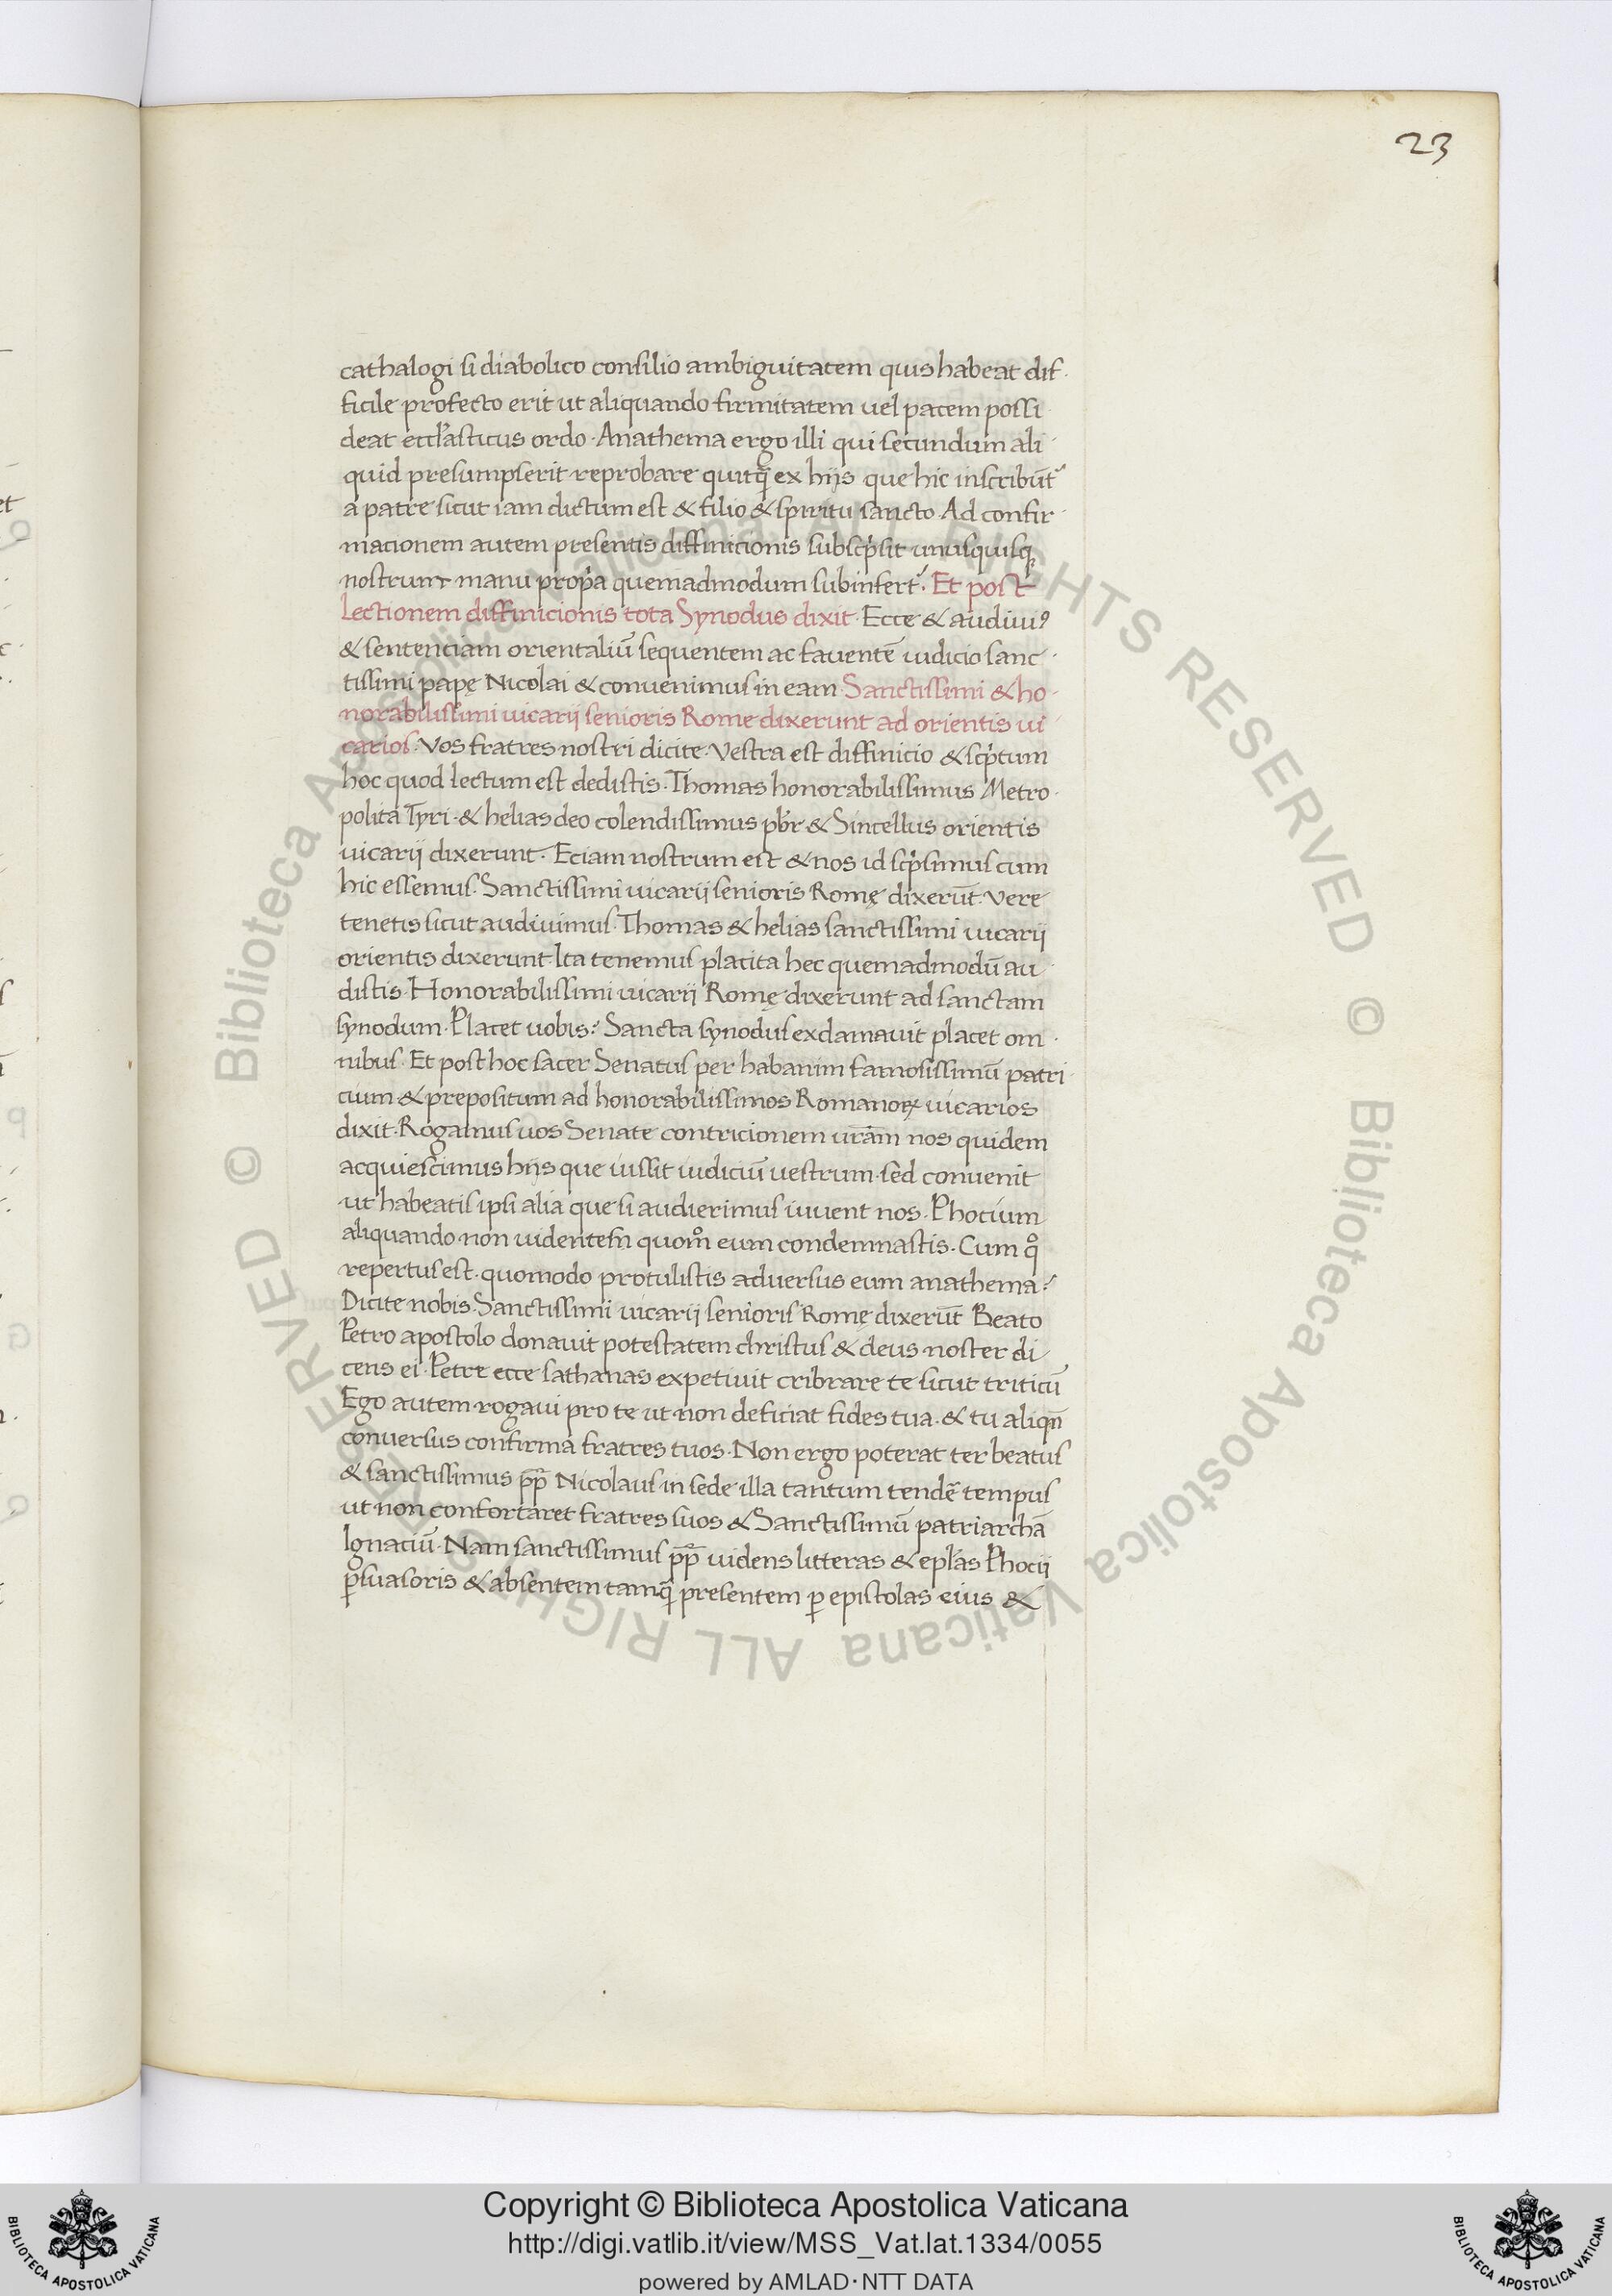 23
cathalogi si diabolico consilio ambiguitatem quis habeat dif
ficile profecto erit ut aliquando firmitatem uel pacem possi
deat eccl'asticus ordo. Anathema ergo illi qui secundum ali
quid presumpserit reprobare quitq̄ ex hijs que hic inscribūt᷑
a patre sicut iam dictum est & filio & spiritu sancto. Ad confir
macionem autem presentis diffinicionis subscp̍sit unusquisq
nostrum manu prop̍a quemadmodum subinfert᷑. Et post
Lectionem diffinicionis tota Synodus dixit. Ecce & audiuiꝰ
& sentenciam orientaliū sequentem ac fauentē iudicio sanc
tissimi papę Nicolai & conuenimus in eam. Sanctissimi & ho
norabilissimi uicarij senioris Rome dixerunt ad orientis ui
carios. Vos fratres nostri dicite. Vestra est diffinicio & scp̍tum
hoc quod lectum est dedistis. Thomas honorabilissimus Metro
polita Tyri. & helias deo colendissimus pb̄r & Sincellus orientis
uicarij dixerunt. Eciam nostrum est & nos id scp̍simus cum
hic essemus. Sanctissimi uicarij senioris Romę dixerūt. Vere
tenetis sicut audiuimus. Thomas & helias sanctissimi uicarij
orientis dixerunt Ita tenemus placita hec quemadmodū au
distis. Honorabilissimi uicarij Romę dixerunt ad sanctam
synodum. Placet uobis? Sancta synodus exclamauit placet om
nibus. Et post hoc sacer Senatus per habanim famosissimū patri
cium & prepositum ad honorabilissimos Romanoꝝ uicarios
dixit. Rogamus uos Senate contricionem ur̄am nos quidem
acquiescimus hijs que iussit iudiciū uestrum. sed conuenit
ut habeatis ipsi alia que si audierimus iuuent nos. Phocium
aliquando non uidentem̄ quom̊ eum condemnastis. Cum q̊
repertus est. quomodo protulistis aduersus eum anathema?
Dicite nobis. Sanctissimi uicarij senioris Romę dixerūt Beato
Petro apostolo donauit potestatem christus & deus noster di
cens ei. Petre ecce sathanas expetiuit cribrare te sicut triticū
Ego autem rogaui pro te ut non deficiat fides tua. & tu aliqn̄
conuersus confirma fratres tuos. Non ergo poterat ter beatus
& sanctissimus pp̄ Nicolaus in sede illa tantum tendē tempus
ut non confortaret fratres suos & Sanctissimū patriarchā
Ignaciū. Nam sanctissimus pp̄ uidens litteras & epl̄as Phocij
ꝑsuasoris & absentem tamq̄ presentem ꝑ epistolas eius &
Copyright © Biblioteca Apostolica Vaticana
http://digi.vatlib.it/view/MSS_Vat.lat.1334/0055
powered by AMLAD·NTT DATA
BIBLIOTECA APOSTOLICA VATICANA
BIBLIOTECA APOSTOLICA VATICANA
© Biblioteca Apostolica Vaticana ALL RIGHTS RESERVED © Biblioteca Apostolica Vaticana ALL RIGHTS RESERVED